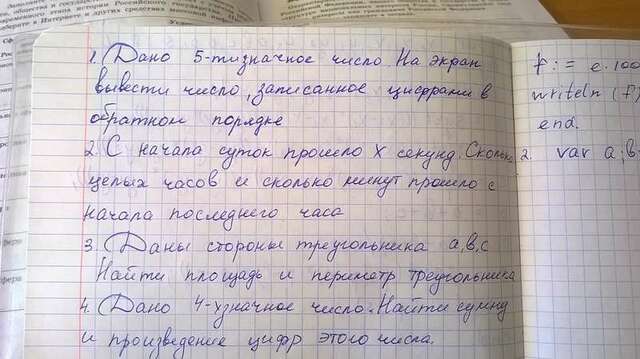 1. Дано 5-тизначное число. На экран
вывести число, записанное цифрами в
обратном порядке
2. С начала суток прошло X секунд. Сколько
целых часов и сколько минут прошло с
начала последнего часа
3. Даны стороны треугольника a, b, c
Найти площадь и периметр треугольника
4. Дано 4-хзначное число. Найти сумму
и произведение цифр этого числа.
writeln (f
end.
2. var a; b